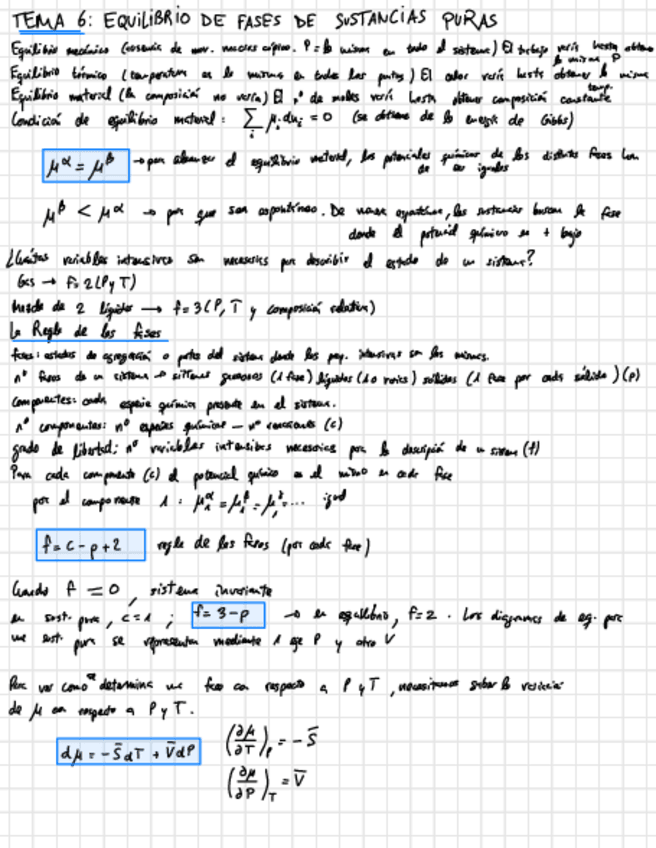 TEMA 6: EQUILIBRIO DE FASES DE SUSTANCIAS PURAS
Equilibrio mecánico (ausencia de mov. macroscópico. P = la misma en todo el sistema) El trabajo varía hasta obtener la misma P
Equilibrio térmico (temperatura es la misma en todos los puntos) El calor varía hasta obtener la misma temp.
Equilibrio material (la composición no varía) El nº de moles varía hasta obtener composición constante
Condición de equilibrio material: Σᵢ μᵢ dnᵢ = 0 (se obtiene de la energía de Gibbs)
μ^α = μ^β → para alcanzar el equilibrio material, los potenciales químicos de las distintas fases han de ser iguales
μ^β < μ^α → para que sea espontáneo. De manera espontánea, las sustancias buscan la fase
donde el potencial químico es + bajo
¿Cuántas variables intensivas son necesarias para describir el estado de un sistema?
Gas → f=2 (P y T)
Mezcla de 2 líquidos → f=3 (P, T y composición relativa)
La Regla de las fases
fases: estados de agregación o partes del sistema donde las prop. intensivas son las mismas.
nº fases de un sistema → sistemas gaseosos (1 fase) líquidos (1 o varias) sólidos (1 fase por cada sólido) (p)
componentes: cada especie química presente en el sistema.
nº componentes: nº especies químicas – nº reacciones (c)
grado de libertad: nº variables intensivas necesarias para la descripción de un sistema (f)
Para cada componente (c) el potencial químico es el mismo en cada fase
para el componente 1: μ₁^α = μ₁^β = μ₁^γ = ... igual
f = c - p + 2 regla de las fases (para cada fase)
Cuando f = 0, sistema invariante
en sust. pura, c=1; f = 3-p → en equilibrio, f=2. Los diagramas de eq. para
una sust. pura se representan mediante 1 eje P y otro V
Para ver como se determina una fase con respecto a P y T, necesitamos saber la variación
de μ con respecto a P y T.
dμ = -S̄dT + V̄dP (∂μ/∂T)_P = -S̄
(∂μ/∂P)_T = V̄